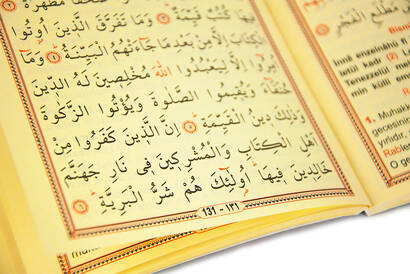 صُحُفًا مُطَهَّرَةً
فِيهَا كُتُبٌ قَيِّمَةٌ ﴿٣﴾ وَمَا تَفَرَّقَ الَّذِينَ اُوتُوا
الْكِتَابَ اِلَّا مِنْ بَعْدِ مَا جَاءَتْهُمُ الْبَيِّنَةُ ﴿٤﴾ وَمَا
اُمِرُوا اِلَّا لِيَعْبُدُوا اللّٰهَ مُخْلِصِينَ لَهُ الدِّينَ
حُنَفَاءَ وَيُقِيمُوا الصَّلٰوةَ وَيُؤْتُوا الزَّكٰوةَ
وَذٰلِكَ دِينُ الْقَيِّمَةِ ﴿٥﴾ اِنَّ الَّذِينَ كَفَرُوا مِنْ
اَهْلِ الْكِتَابِ وَالْمُشْرِكِينَ فِى نَارِ جَهَنَّمَ
خَالِدِينَ فِيهَا اُولٰئِكَ هُمْ شَرُّ الْبَرِيَّةِ ﴿٦﴾
131 - ١٣١
مَطْلَعِ الْفَجْرِ
Innâ enzelnâhü fî
letül kadr (2)
Tenezzelül me
min külli em
1. Muhakk
gecesinin
yırlıdır.
Rable
O ge